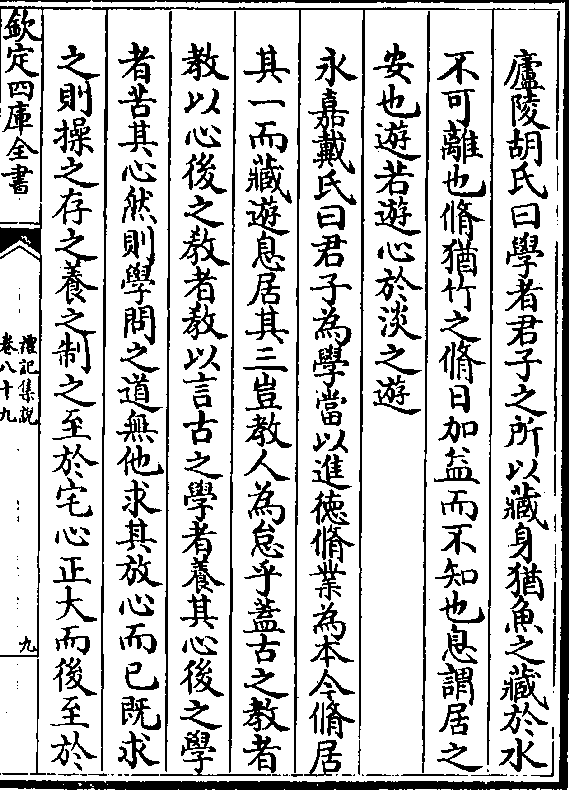 廬陵胡氏曰學者君子之所以藏身猶魚之藏於水
不可離也脩猶竹之脩日加益而不知也息謂居之
安也遊若遊心於淡之遊
永嘉戴氏曰君子為學當以進徳脩業為本今脩居
其一而藏遊息居其三豈教人為怠乎蓋古之教者
教以心後之教者教以言古之學者養其心後之學
者苦其心然則學問之道無他求其放心而已既求
之則操之存之養之制之至於宅心正大而後至於
欽定四庫全書
禮記集説
卷八十九
九